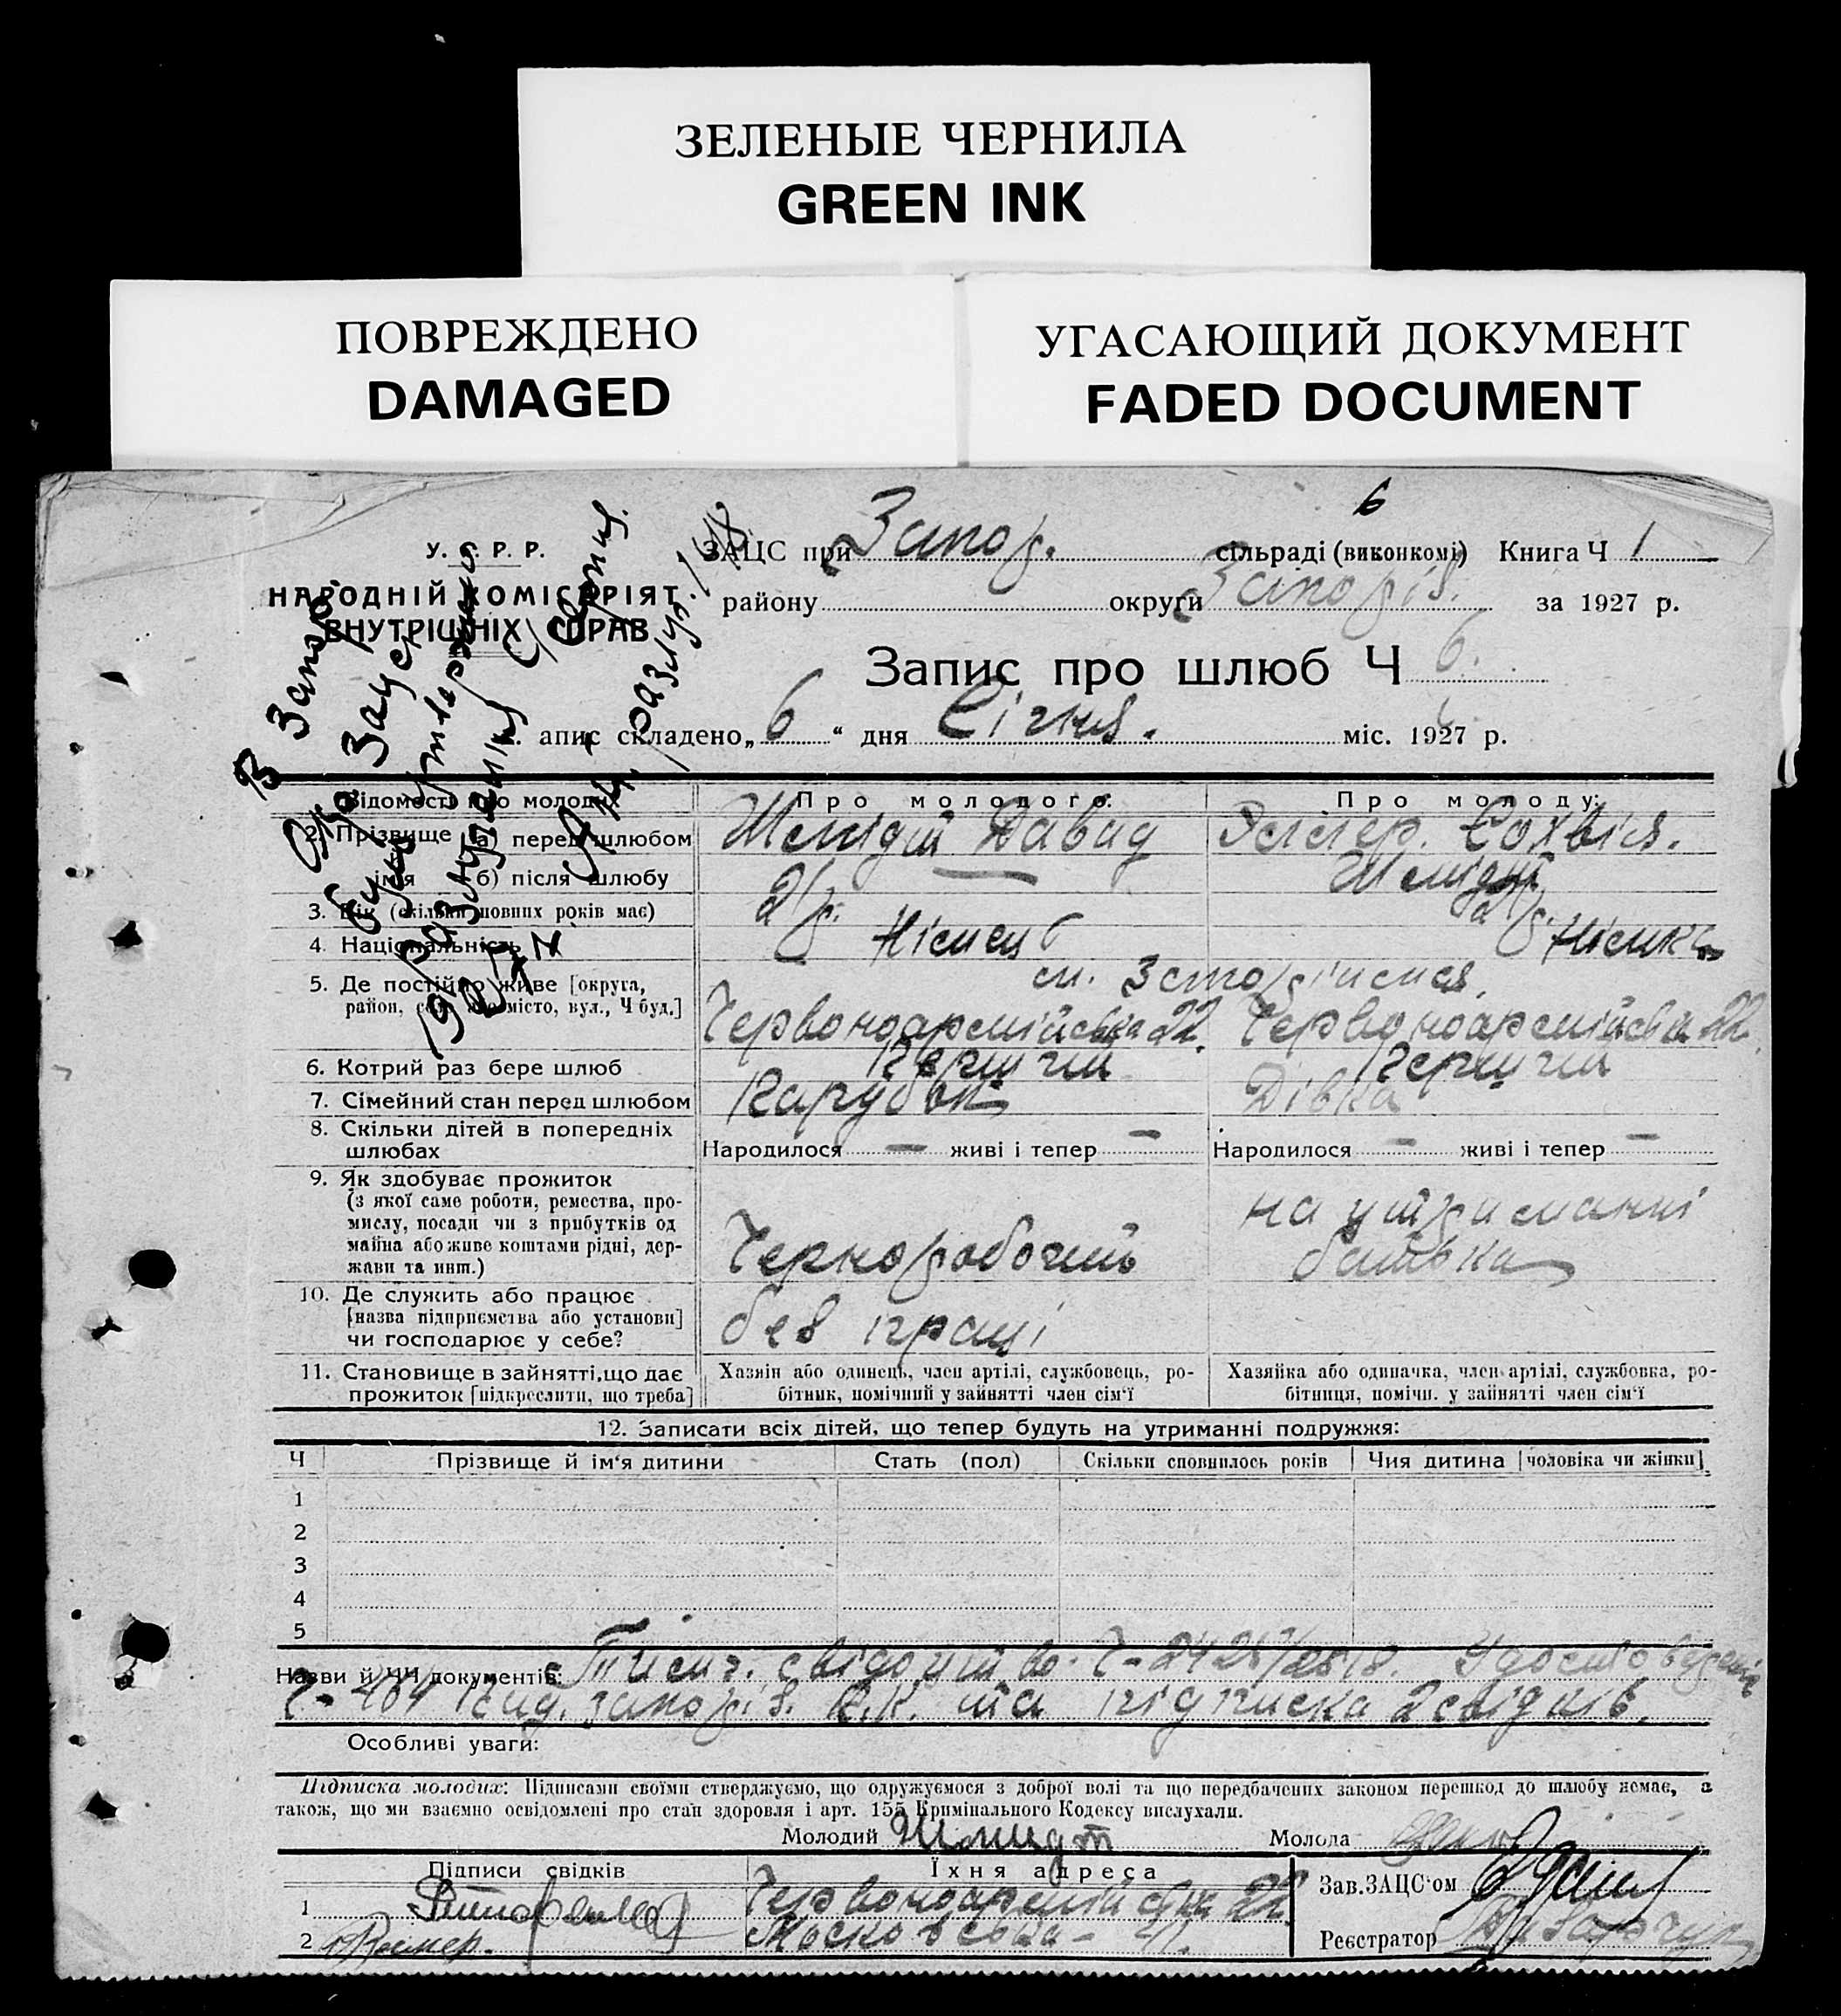 ЗЕЛЕНЫЕ ЧЕРНИЛА
GREEN INK
ПОВРЕЖДЕНО
DAMAGED
УГАСАЮЩИЙ ДОКУМЕНТ
FADED DOCUMENT
6
У. С. Р. Р.
НАРОДНІЙ КОМІСАРІЯТ
ВНУТРІШНІХ СПРАВ
ЗАЦС при Запор. сільраді (виконкомі) Книга Ч 1
району округи Запоріз. за 1927 р.
Запис про шлюб Ч 6.
апис складено „6“ дня Січня. міс. 1927 р.
Відомості про молодих Про молодого: Про молоду:
2. Прізвище а) перед шлюбом Шмідт Давид Сохвія.
імя б) після шлюбу — Шмідт
3. Вік (скільки повних років має) 21 р. 21 р.
4. Національність Німець Німка
5. Де постійно живе [округа, м. Запоріжжя,
район, село або місто, вул., Ч буд.] Червоноармійська 22. Червоноармійська 22.
6. Котрий раз бере шлюб Перший Перший
7. Сімейний стан перед шлюбом Парубок Дівка
8. Скільки дітей в попередніх
шлюбах Народилося — живі і тепер — Народилося — живі і тепер —
9. Як здобуває прожиток
(з якої саме роботи, ремества, про-
мислу, посади чи з прибутків од
майна або живе коштами рідні, дер-
жави та инш.) Черноробочий на утриманні батька
10. Де служить або працює
[назва підприємства або установи]
чи господарює у себе? без праці
11. Становище в зайнятті, що дає
прожиток [підкреслити, що треба]
Хазяін або одинець, член артілі, службовець, ро-
бітник, помічний у зайнятті член сім'ї
Хазяйка або одиначка, член артілі, службовка, ро-
бітниця, помічн. у зайнятті член сім'ї
12. Записати всіх дітей, що тепер будуть на утриманні подружжя:
Ч Прізвище й ім'я дитини Стать (пол) Скільки сповнилось років Чия дитина [чоловіка чи жінки]
1
2
3
4
5
Назви й ЧЧ документів: Тимч. свідоцтво Ч-
Ч-404 Вид. запоріз. та підписка 2 свідків.
Особливі уваги:
Підписка молодих: Підписами своїми стверджуємо, що одружуємося з доброї волі та що передбачених законом перешкод до шлюбу немає, а
також, що ми взаємно освідомлені про стан здоровля і арт. 155 Кримінального Кодексу вислухали.
Молодий Шмидт Молода
Підписи свідків Їхня адреса
Зав. ЗАЦС'ом
1 Червоноармійськ 22
2 Московська
Реєстратор